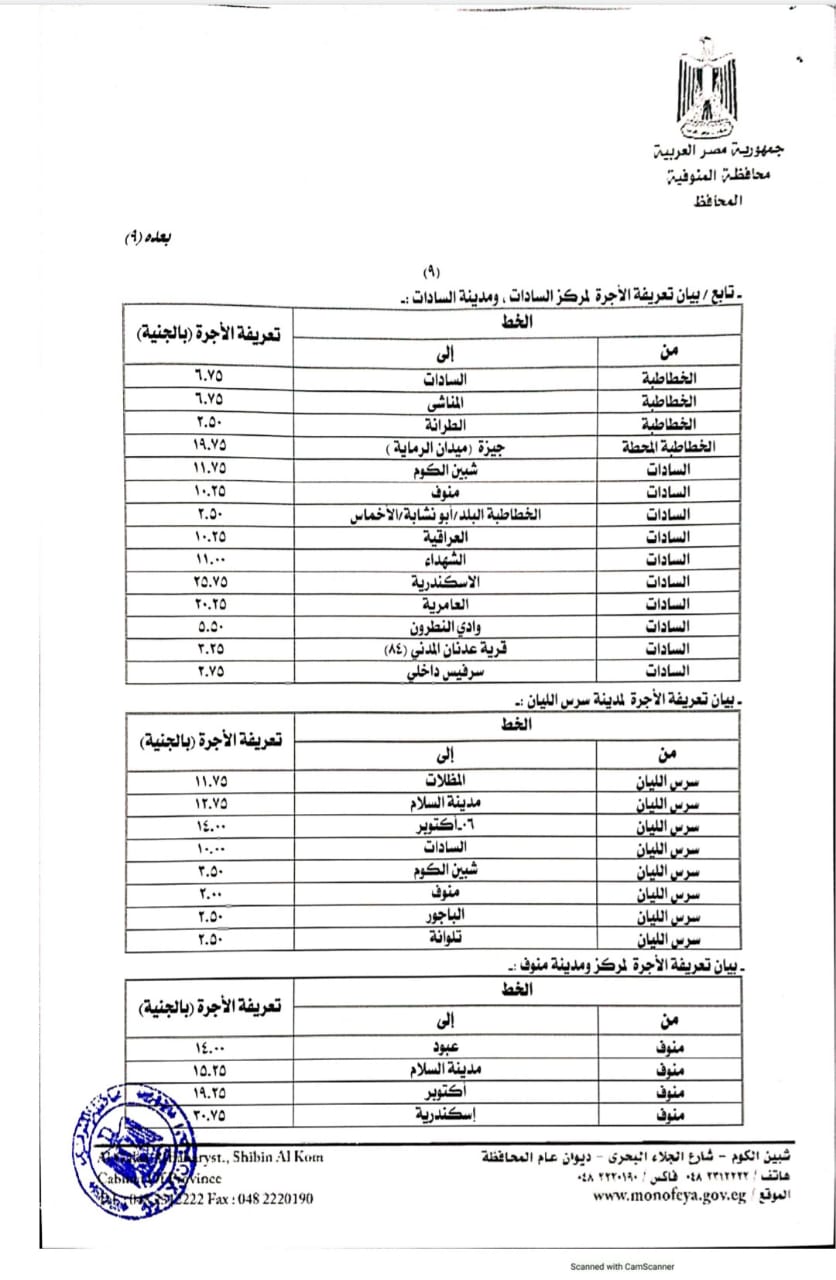 جمهورية مصر العربية
محافظة المنوفية
المحافظ
بعده (٩)
(٩)
ـ تابع / بيان تعريفة الأجرة لمركز السادات ، ومدينة السادات :ـ
الخط تعريفة الأجرة (بالجنية)
من إلى
الخطاطبة السادات ٦.٧٥
الخطاطبة المناشى ٦.٧٥
الخطاطبة الطرانة ٢.٥٠
الخطاطبة المحطة جيزة (ميدان الرماية) ١٩.٧٥
السادات شبين الكوم ١١.٧٥
السادات منوف ١٠.٢٥
السادات الخطاطبة البلد/أبو نشابة/الأخماس ٢.٥٠
السادات العراقية ١٠.٢٥
السادات الشهداء ١١.٠٠
السادات الاسكندرية ٢٥.٧٥
السادات العامرية ٢٠.٢٥
السادات وادي النطرون ٥.٥٠
السادات قرية عدنان المدني (٨٤) ٣.٢٥
السادات سرفيس داخلي ٢.٧٥
ـ بيان تعريفة الأجرة لمدينة سرس الليان :ـ
الخط تعريفة الأجرة (بالجنية)
من إلى
سرس الليان المظلات ١١.٧٥
سرس الليان مدينة السلام ١٢.٧٥
سرس الليان ٠٦أكتوبر ١٤.٠٠
سرس الليان السادات ١٠.٠٠
سرس الليان شبين الكوم ٣.٥٠
سرس الليان منوف ٢.٠٠
سرس الليان الباجور ٢.٥٠
سرس الليان تلوانة ٢.٥٠
ـ بيان تعريفة الأجرة لمركز ومدينة منوف :ـ
الخط تعريفة الأجرة (بالجنية)
من إلى
منوف عبود ١٤.٠٠
منوف مدينة السلام ١٥.٢٥
منوف أكتوبر ١٩.٢٥
منوف إسكندرية ٣٠.٧٥
شبين الكوم – شارع الجلاء البحرى – ديوان عام المحافظة
هاتف / ٢٣١٢٢٢٢ ٠٤٨ فاكس / ٢٢٢٠١٩٠ ٠٤٨
الموقع / www.monofeya.gov.eg
st., Shibin Al Kom
Province
2222 Fax : 048 2220190
Scanned with CamScanner